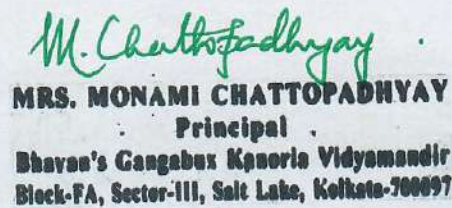 M. Chattopadhyay
MRS. MONAMI CHATTOPADHYAY
Principal
Bhavan's Gangabux Kanoria Vidyamandir
Block-FA, Sector-III, Salt Lake, Kolkata-700097